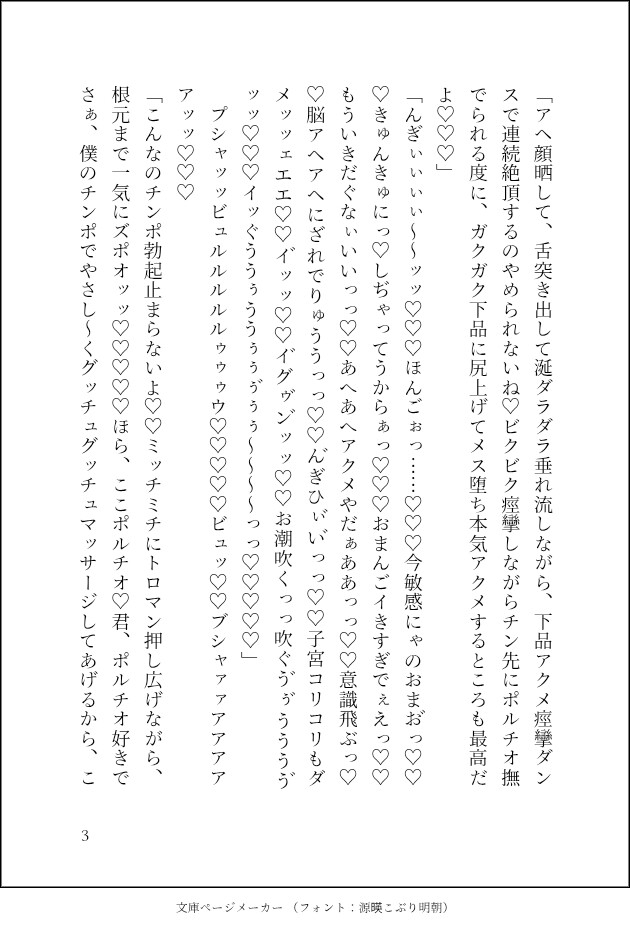 「アヘ顔晒して、舌突き出して涎ダラダラ垂れ流しながら、下品アクメ痙攣ダン
スで連続絶頂するのやめられないね♡ビクビク痙攣しながらチン先にポルチオ撫
でられる度に、ガクガク下品に尻上げてメス堕ち本気アクメするところも最高だ
よ♡♡♡」
「んぎぃぃぃぃ～～ッッ♡♡♡ほんごぉっ……♡♡♡今敏感にゃのおまお゛っ♡♡
♡きゅんきゅにっ♡しぢゃってうからぁっ♡♡♡おまんごイきすぎでぇえっ♡♡
もういきだぐなぃいいっっ♡♡あへあへアクメやだぁああっっ♡♡意識飛ぶっ♡
♡脳アヘアヘにざれでりゅううっっ♡♡ん゛ぎひぃ゛い゛っっ♡♡子宮コリコリもダ
メッッェエエ♡♡イ゛ッッ♡♡イ゛グゥ゛ン゛ッッ♡♡お潮吹くっっ吹ぐう゛ぅ゛うううう゛
ッッ♡♡♡イッぐううぅううぅぅ゛ぅぅ～～～～っっ♡♡♡♡♡」
　プシャッッビュルルルルルゥゥゥウ♡♡♡♡♡ビュッ♡♡ブシャァァアアアア
アッッ♡♡♡
「こんなのチンポ勃起止まらないよ♡♡ミッチミチにトロマン押し広げながら、
根元まで一気にズポオッッ♡♡♡♡♡ほら、ここポルチオ♡君、ポルチオ好きで
さぁ、僕のチンポでやさし～くグッチュグッチュマッサージしてあげるから、こ
3
文庫ページメーカー（フォント：源暎こぶり明朝）